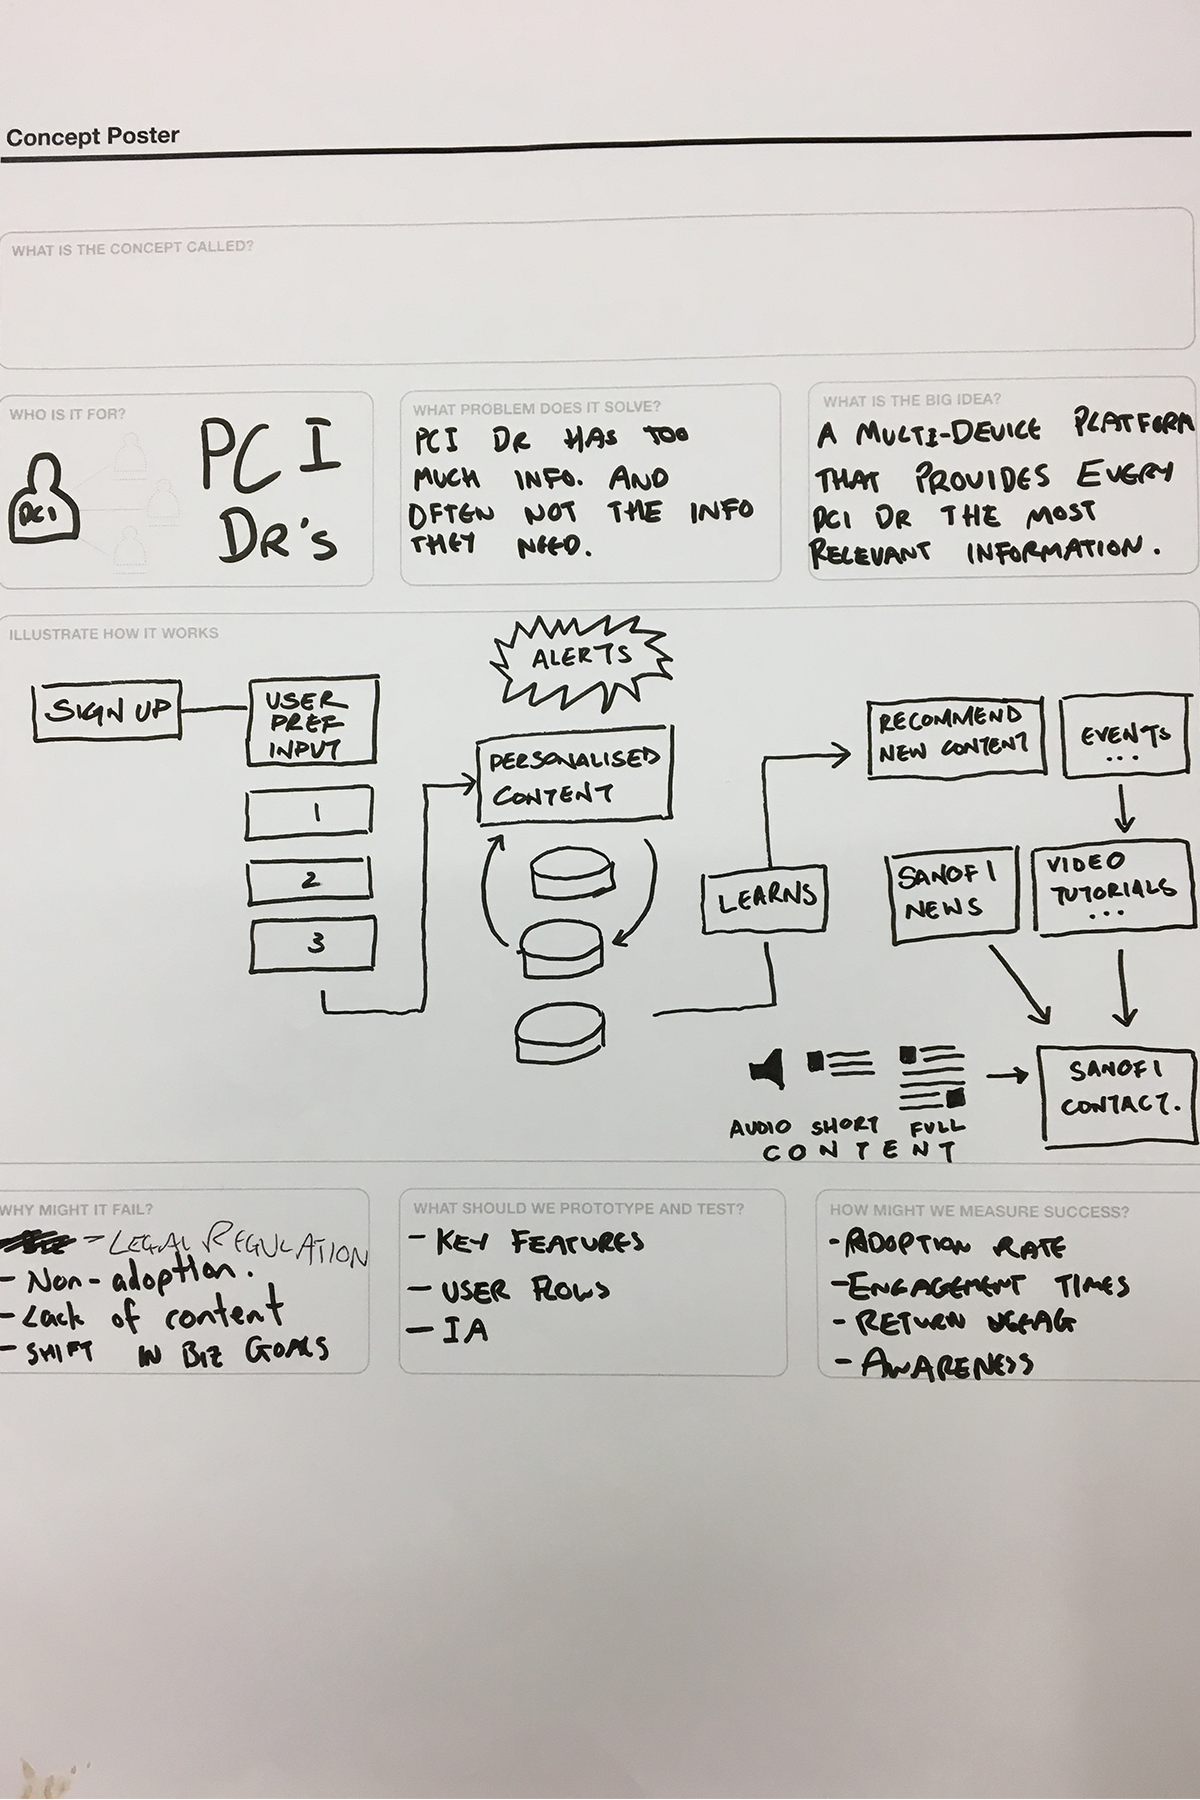 Concept Poster
WHAT IS THE CONCEPT CALLED?
WHO IS IT FOR?
PCI
PCI
DR'S
WHAT PROBLEM DOES IT SOLVE?
PCI DR HAS TOO
MUCH INFO. AND
OFTEN NOT THE INFO
THEY NEED.
WHAT IS THE BIG IDEA?
A MULTI-DEVICE PLATFORM
THAT PROVIDES EVERY
PCI DR THE MOST
RELEVANT INFORMATION.
ILLUSTRATE HOW IT WORKS
SIGN UP
USER
PREF
INPUT
1
2
3
ALERTS
PERSONALISED
CONTENT
LEARNS
RECOMMEND
NEW CONTENT
EVENTS
...
SANOFI
NEWS
VIDEO
TUTORIALS
...
AUDIO SHORT FULL
CONTENT
SANOFI
CONTACT.
WHY MIGHT IT FAIL?
- LEGAL REGULATION
- Non-adoption.
- Lack of content
- SHIFT IN BIZ GOALS
WHAT SHOULD WE PROTOTYPE AND TEST?
- KEY FEATURES
- USER FLOWS
- IA
HOW MIGHT WE MEASURE SUCCESS?
- ADOPTION RATE
- ENGAGEMENT TIMES
- RETURN
- AWARENESS